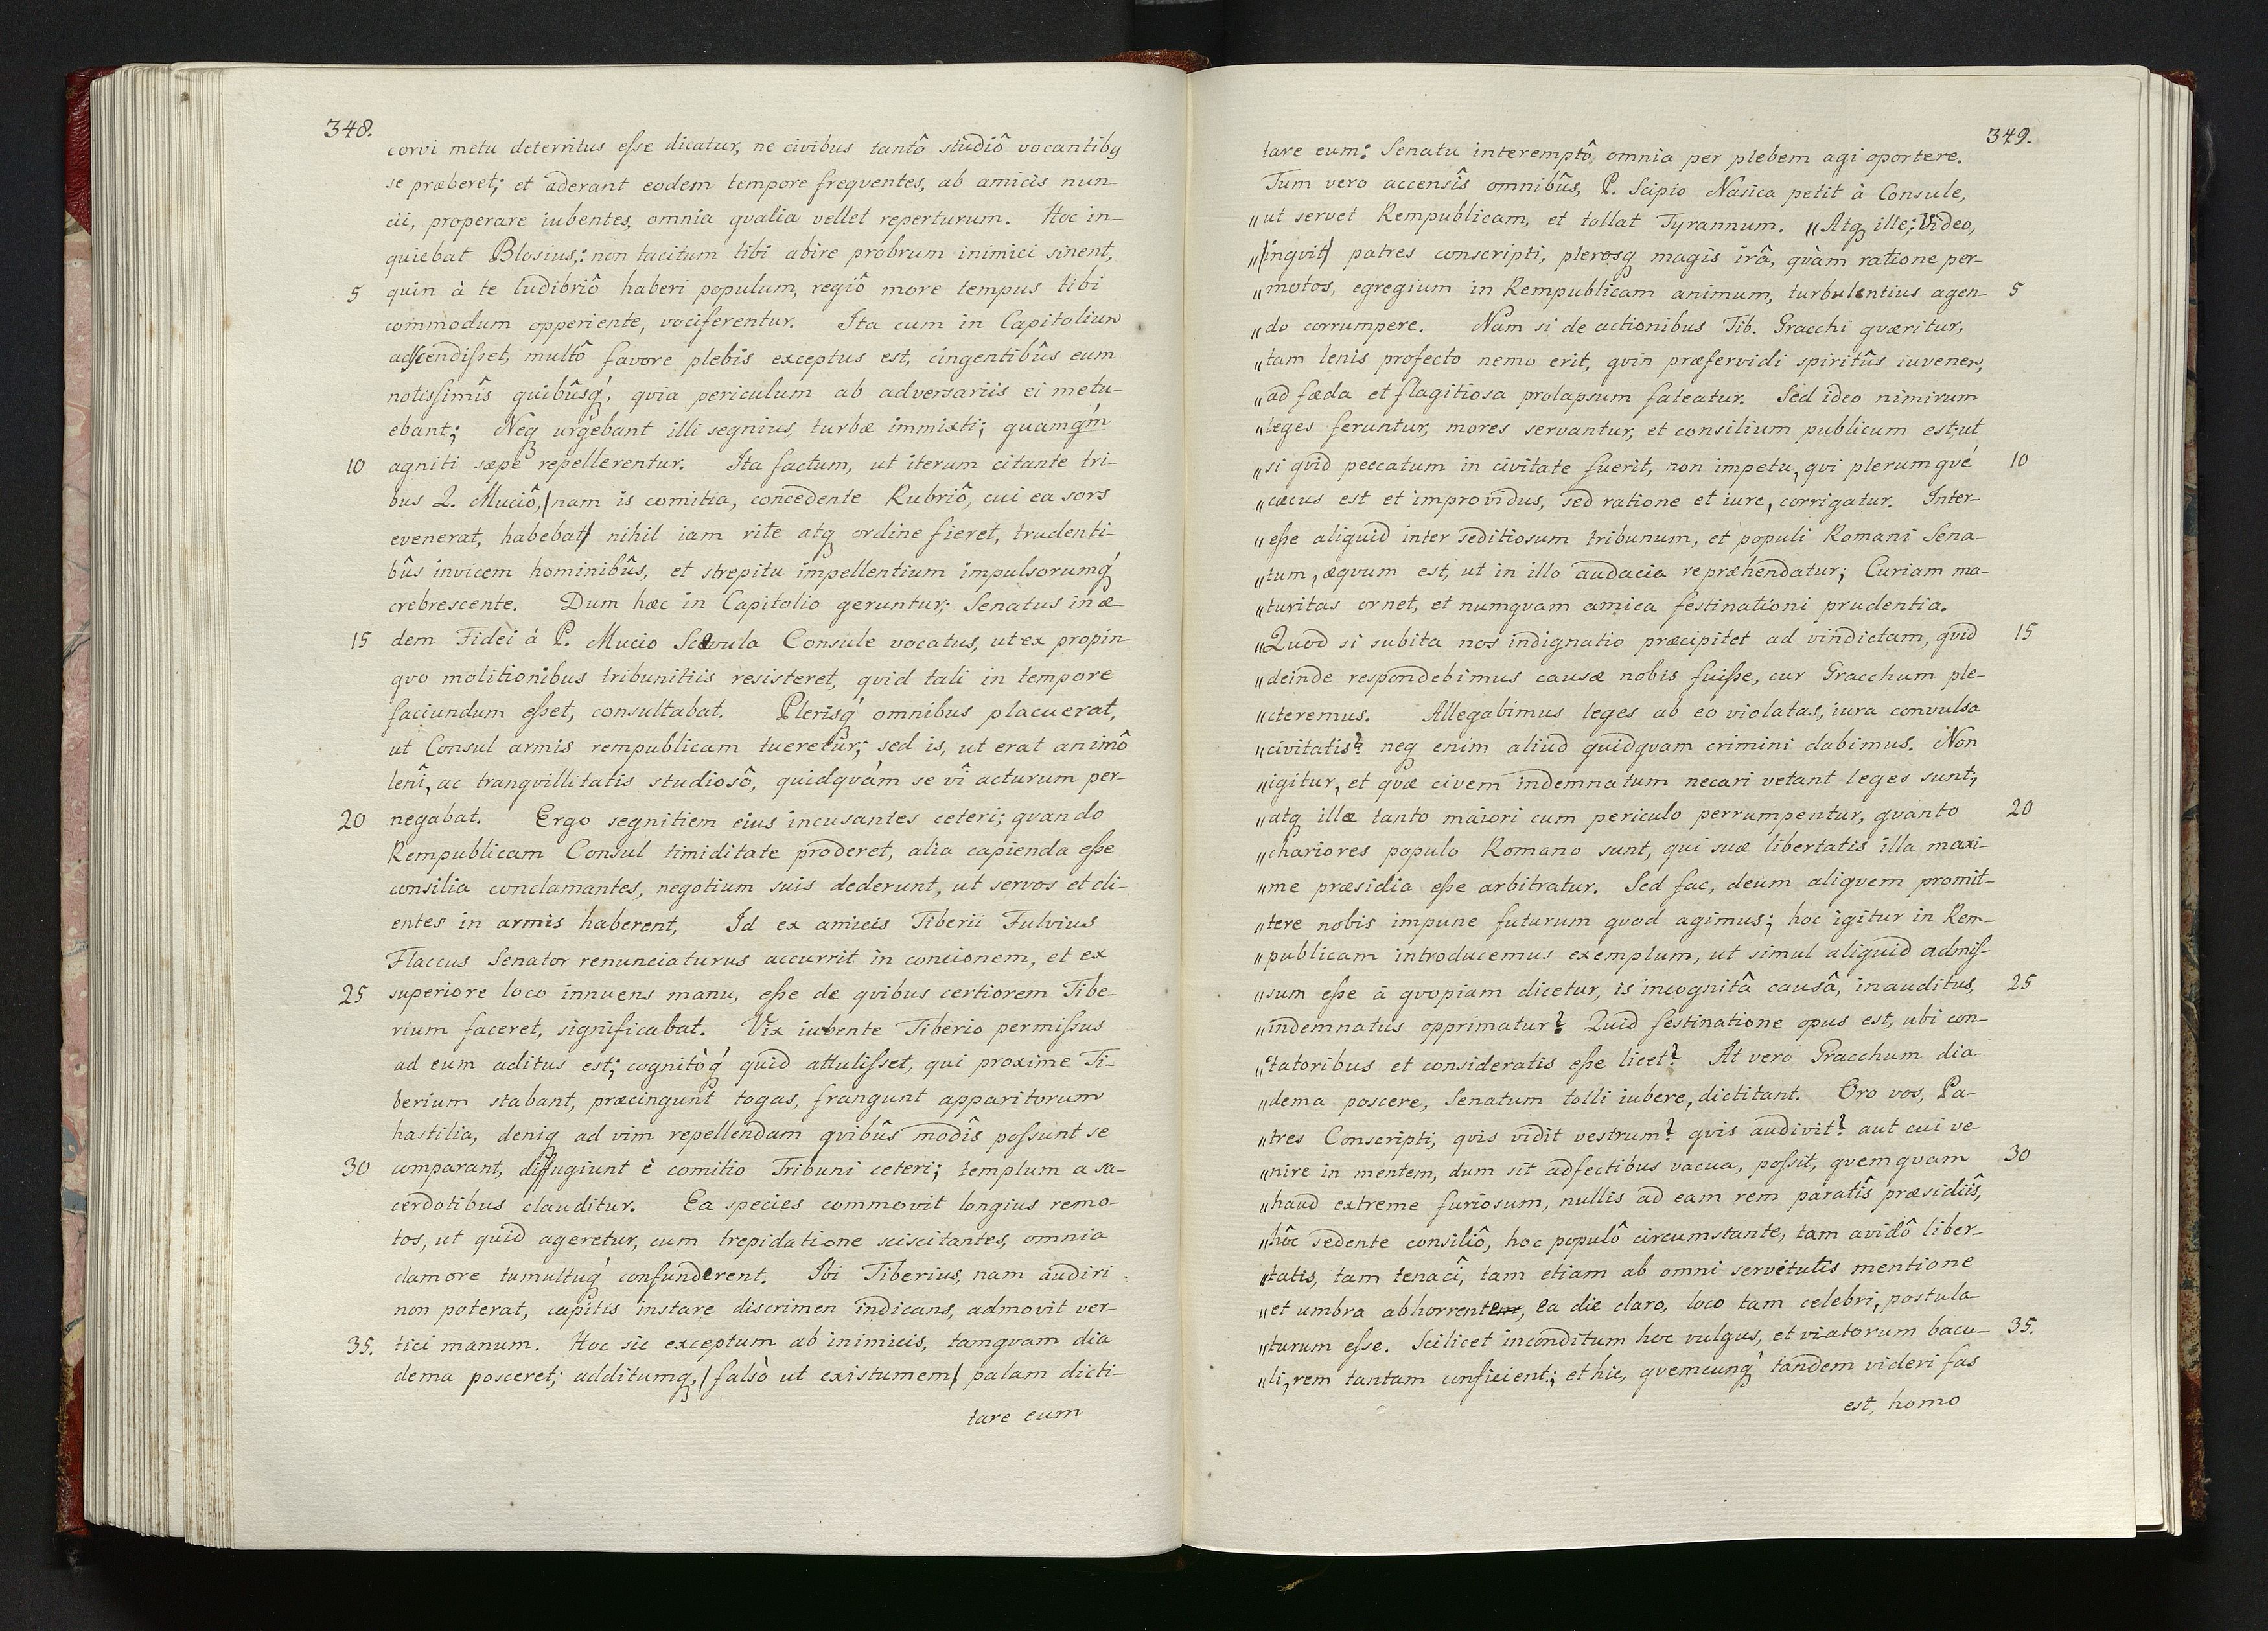 348.
corvi metu deterritus eſse dicatur, ne civibus tantô studiô vocantibꝫ
se præberet; et aderant eodem tempore freqventes, ab amicis nun-
cii, properare iubentes, omnia qvalia vellet reperturum. Hoc in-
quiebat Blosius: non tacitum tibi abire probrum inimici sinent,
5 quin à te ludibriô haberi populum, regiô more tempus tibi
commodum opperiente, vociferentur. Ita cum in Capitolium
adſcendiſset, multô favore plebis exceptus est, cingentibûs eum
notiſsimîs quibûsq́ꝫ, qvia periculum ab adversariis ei metu-
ebant; Neqꝫ urgebant illi segnius, turbæ immixti; quamq́m
10 agniti sæpe repellerentur. Ita factum, ut iterum citante tri-
bus Q. Muciô, /nam is comitia, concedente Rubriô, cui ea sors
evenerat, habebat/ nihil iam rite atqꝫ ordine fieret, trudenti-
bûs invicem hominibûs, et strepitu impellentium impulsorumq́ꝫ
crebrescente. Dum hæc in Capitolio geruntur; Senatus in æ-
15 dem Fidei à P. Mucio Scævula Consule vocatus, ut ex propin-
qvo molitionibus tribunitiis resisteret, qvid tali in tempore
faciundum eſset, consultabat. Plerisq́ꝫ omnibus placuerat,
ut Consul armis rempublicam tueretur; sed is, ut erat animô
lenî, ac tranqvillitatis studiosô, quidqvám se vî acturum per-
20 negabat. Ergo segnitiem eius incusantes ceteri; qvando
Rempublicam Consul timiditate proderet, alia capienda eſse
consilia conclamantes, negotium suis dederunt, ut servos et cli-
entes in armis haberent, Id ex amicis Tiberii Fulvius
Flaccus Senator renunciaturus accurrit in concionem, et ex
25 superiore loco innuens manu, eſse de qvibus certiorem Tibe-
rium faceret, significabat. Vix iubente Tiberio permiſsus
ad eum aditus est; cognitòq́ꝫ quid attuliſset, qui proxime Ti-
berium stabant, præcingunt togas, frangunt apparitorum
hastilia, deniqꝫ ad vim repellendam qvibûs modîs poſsunt se
30 comparant, diffugiunt è comitio Tribuni ceteri; templum a sa-
cerdotibus clauditur. Ea species commovit longius remo-
tos, ut quid ageretur, cum trepidatione sciscitantes, omnia
clamore tumultuq́ꝫ confunderent. Ibi Tiberius, nam audiri
non poterat, capitis instare discrimen indicans, admovit ver-
35. tici manum. Hoc sic exceptum ab inimicis, tamqvam dia
dema posceret; additumqꝫ, /falsò ut existumem/ palam dicti-
tare eum
349.
tare eum: Senatu interemptô, omnia per plebem agi oportere.
Tum vero accensîs omnibûs, P. Scipio Nasica petit à Consule,
„ut servet Rempublicam, et tollat Tyrannum. „Atqꝫ ille: Video,
„/inqvit/ patres conscripti, plerosqꝫ magis irâ, qvàm ratione per-
„motos, egregium in Rempublicam animum, turbulentius agen- 5
„do corrumpere. Nam si de actionibus Tib. Gracchi qværitur,
„tam lenis profecto nemo erit, qvin præfervidi spiritûs iuvenem,
„ad fæda et flagitiosa prolapsum fateatur. Sed ideo nimirum
„leges feruntur, mores servantur, et consilium publicum est; ut
„si qvid peccatum in civitate fuerit, non impetu, qvi plerumqvé 10
„cæcus est et improvidus, sed ratione et iure, corrigatur. Inter-
„eſse aliquid inter seditiosum tribunum, et populi Romani Sena-
„tum, æqvum est, ut in illo audacia repræhendatur; Curiam ma-
„turitas ornet, et numqvam amica festinationi prudentia.
„Quod si subita nos indignatio præcipitet ad vindictam, qvid 15
„deinde respondebimus causæ nobis fuiſse, cur Gracchum ple-
„cteremus. Allegabimus leges ab eo violatas, iura convulsa
„civitatis? neqꝫ enim aliud quidqvam crimini dabimus. Non
„igitur, et qvæ civem indemnatum necari vetant leges sunt,
„atqꝫ illæ tanto maiori cum periculo perrumpentur, qvanto 20
„chariores populo Romano sunt, qui suæ libertatis illa maxi-
„me præsidia eſse arbitratur. Sed fac, deum aliqvem promit-
„tere nobis impune futurum qvod agimus; hoc igitur in Rem-
„publicam introducemus exemplum, ut simul aliquid admiſ-
„sum eſse à qvopiam dicetur, is incognitâ causâ, inauditus, 25
„indemnatus opprimatur? Quid festinatione opus est, ubi con-
„tatoribus et consideratis eſse licet? At vero Gracchum dia-
„dema poscere, Senatum tolli iubere, dictitant. Oro vos, Pa-
„tres Conscripti, qvis vidit vestrum? qvis audivit? aut cui ve
„nire in mentem, dum sit adfectibus vacua, poſsit, qvemqvam 30
„haud extreme furiosum, nullis ad eam rem paratîs præsidiîs,
„hôc sedente consiliô, hoc populô circumstante, tam avidô liber-
„tatis, tam tenacî, tam etiam ab omni servitutis mentione
„et umbra abhorrente, ea die claro, loco tam celebri, postula-
„turum eſse. Scilicet inconditum hoc vulgus, et viatorum bacu- 35.
„li, rem tantam conficient; et hic, qvemcunq́ꝫ tandem videri fas
est, homo